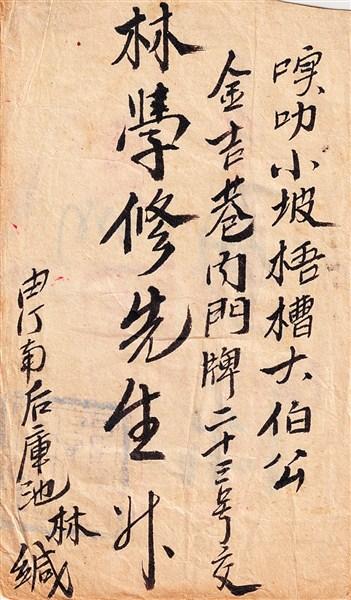 叻小坡梧槽大伯公
金吉巷内門牌二十三号交
林學修先生升
由汀南后庫池林緘